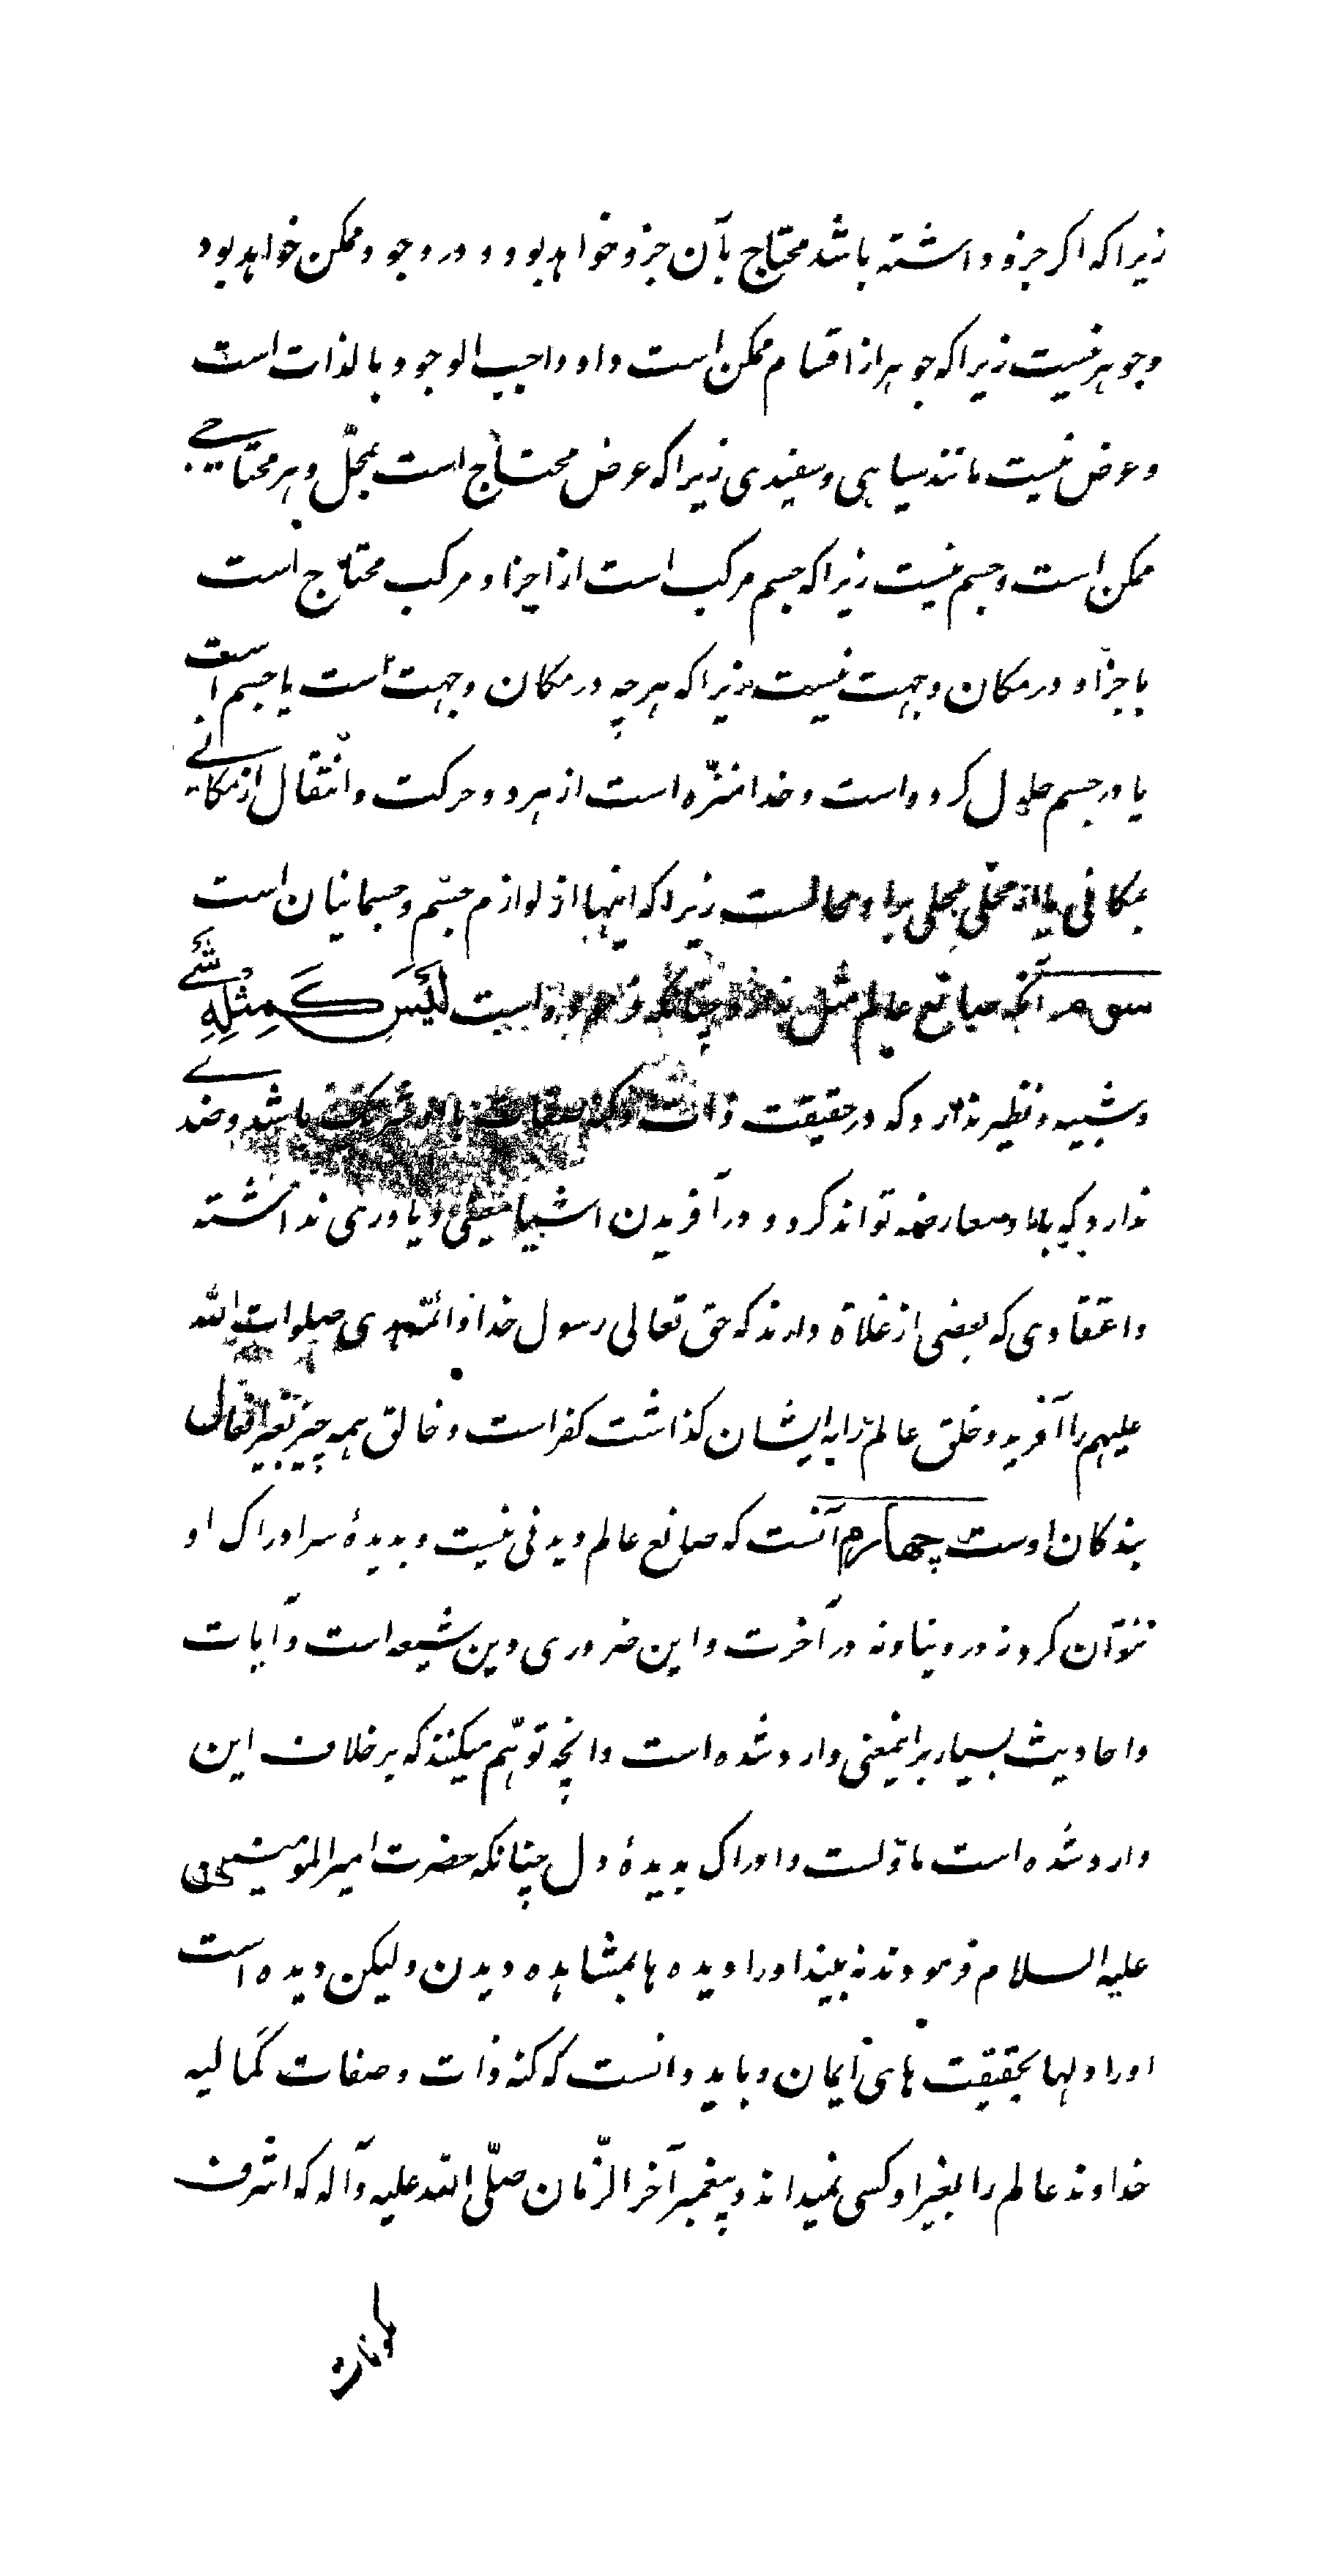 زیرا که اگر جزو داشته باشد محتاج بآن جزو خواهد بود و در وجود ممکن خواهد بود
و جوهر نیست زیرا که جوهر از اقسام ممکن است و او واجب الوجود بالذات است
و عرض نیست مانند سیاهی و سفیدی زیرا که عرض محتاج است بمحلّ و هر محتاجی
ممکن است و جسم نیست زیرا که جسم مرکب است از اجزا و مرکب محتاج است
باجزا و در مکان و جهت نیست زیرا که هر چه در مکان و جهت است یا جسم است
یا در جسم حلول کرده است و خدا منزّه است از هر دو و حرکت و انتقال از مکانی
بمکانی یا از محلی بمحلی بر او محالست زیرا که اینها از لوازم جسم و جسمانیان است
سوم آنکه صانع عالم مثل ندارد چنانکه فرموده است لَیْسَ کَمِثْلِهِ شَیْءٌ
و شبیه و نظیر ندارد که در حقیقت ذات و کنه صفات با او شریک باشد و ضدی
ندارد که با او معارضه تواند کرد و در آفریدن اشیا معینی و یاوری نداشته
و اعتقادی که بعضی از غلاة دارند که حق تعالی رسول خدا و ائمّه هدی صلوات الله
علیهم را آفرید و خلق عالم را به ایشان گذاشت کفر است و خالق همه چیز بغیر افعال
بندگان اوست چهارم آنست که صانع عالم دیدنی نیست و بدیدهٔ سر ادراک او
نتوان کرد نه در دنیا و نه در آخرت و این ضروری دین شیعه است و آیات
و احادیث بسیار بر اینمعنی وارد شده است و آنچه توهّم میکنند که بر خلاف این
وارد شده است ماوّلست و ادراک بدیدهٔ دل چنانکه حضرت امیر المومنین
علیه السلام فرمودند نه بیند او را دیده ها بمشاهده دیدن ولیکن دیده است
او را دلها بحقیقت های ایمان و باید دانست که کنه ذات و صفات کمالیه
خداوند عالم را بغیر او کسی نمیداند و پیغمبر آخر الزّمان صلّی الله علیه و آله که اشرف